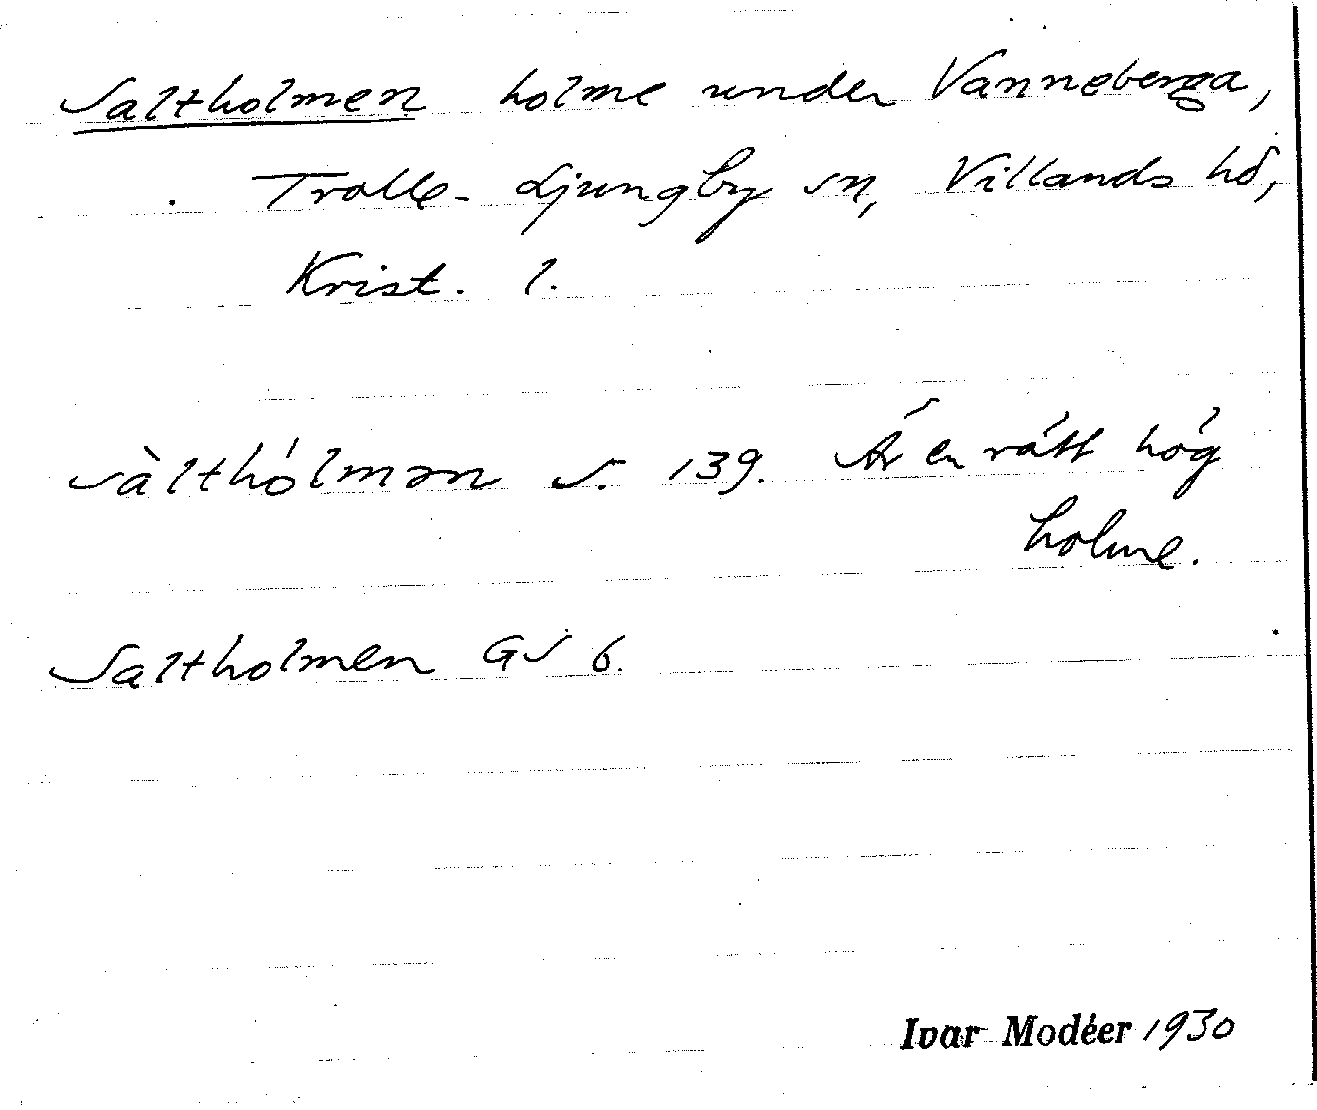 Saltholmen holme under Vanneberga,
Trolle-Ljungby sn, Villands hd,
Krist. l.
sàlthólmən S. 139. Är en rätt hög
holme.
Saltholmen GS 6.
Ivar Modéer 1930